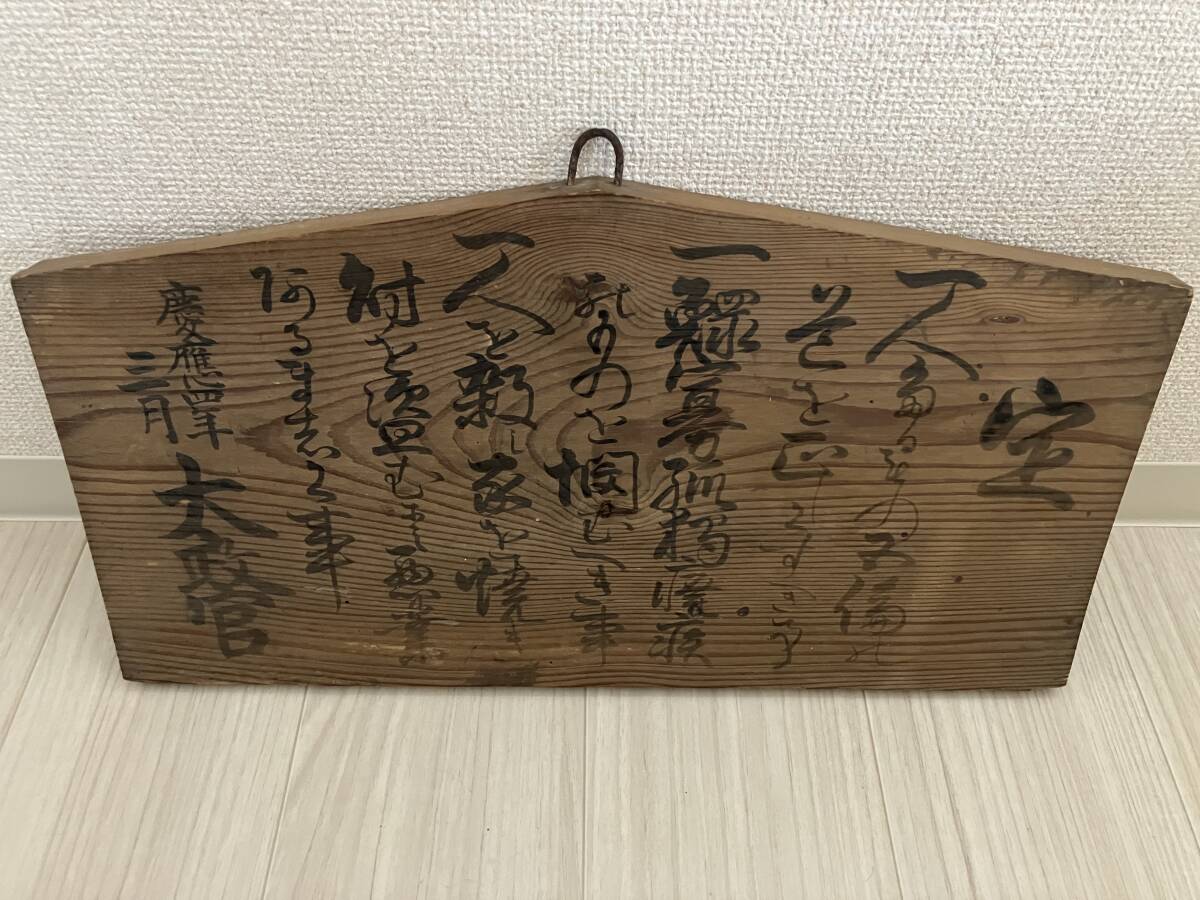 定
一人たるもの五倫の
道を正しくすへき事
一鰥寡孤獨癈疾
のものを憫むへき事
一人を殺し家を焼き
財を盗む等の悪業
あるましく事
慶應四年
三月
太政官